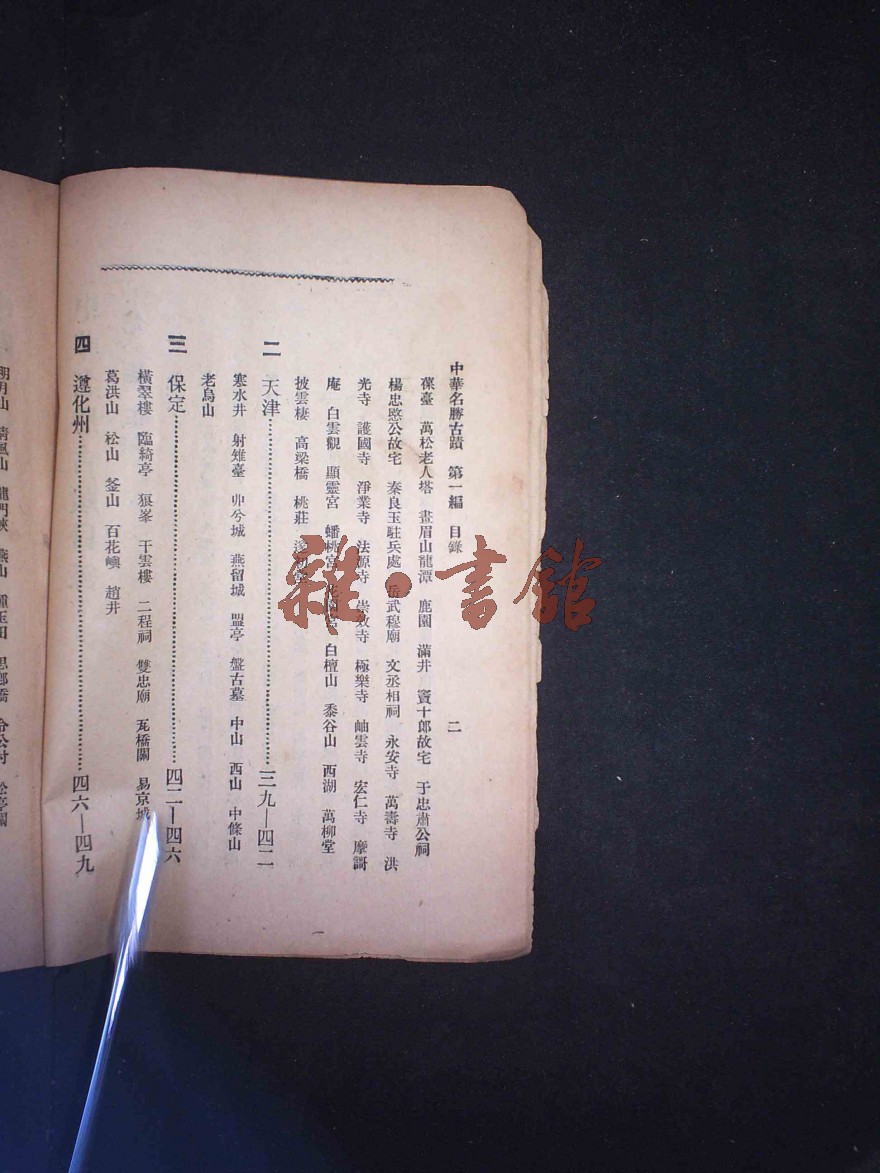 中華名勝古蹟 第一編 目錄 二
葆臺 萬松老人塔 畫眉山龍潭 鹿園 滿井 竇十郎故宅 于忠肅公祠
楊忠愍公故宅 秦良玉駐兵處 岳武穆廟 文丞相祠 永安寺 萬壽寺 洪
光寺 護國寺 淨業寺 法源寺 崇效寺 極樂寺 岫雲寺 宏仁寺 摩訶
庵 白雲觀 顯靈宮 蟠桃宮 白檀山 黍谷山 西湖 萬柳堂
披雲樓 高梁橋 桃莊
二 天津 三九—四二
寒水井 射雉臺 丱兮城 燕留城 盟亭 盤古墓 中山 西山 中條山
老烏山
三 保定 四二—四六
橫翠樓 臨綺亭 狼峯 干雲樓 二程祠 雙忠廟 瓦橋關 易京城
葛洪山 松山 釜山 百花嶼 趙井
四 遵化州 四六—四九
明月山 清風山 龍門峽 燕山 種玉田 思鄉橋 令公村 松亭關
雜·書館